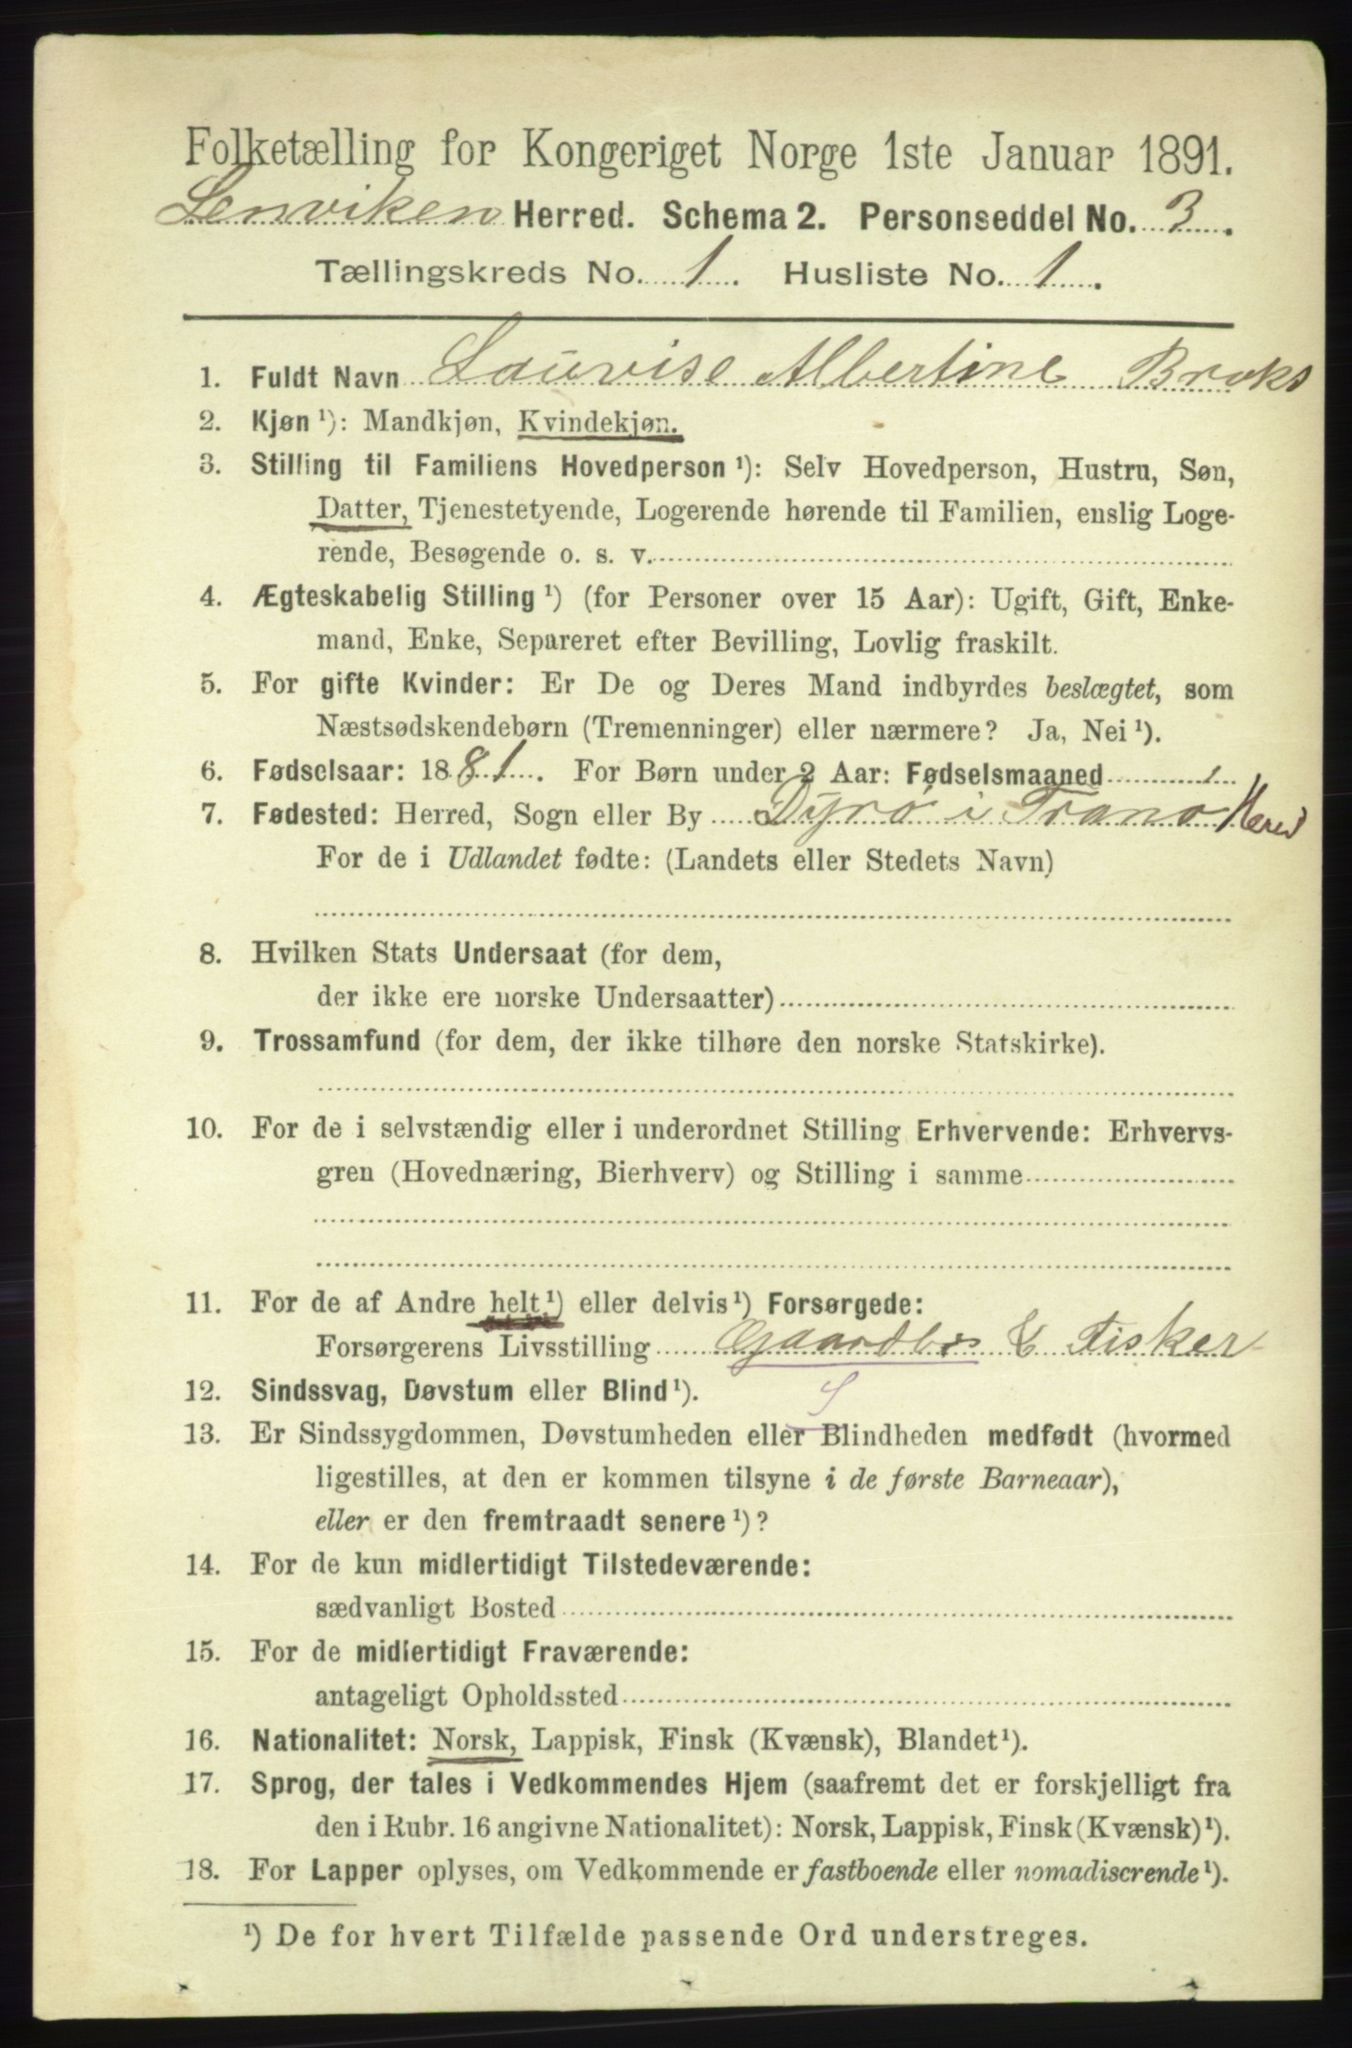 Folketælling for Kongeriget Norge 1ste Januar 1891.
Lenviken Herred. Schema 2. Personseddel No. 3.
Tællingskreds No. 1. Husliste No. 1.
1. Fuldt Navn Lauvise Albertine Broks
2. Kjøn ¹): Mandkjøn, Kvindekjøn.
3. Stilling til Familiens Hovedperson ¹): Selv Hovedperson, Hustru, Søn,
Datter, Tjenestetyende, Logerende hørende til Familien, enslig Loge-
rende, Besøgende o. s. v.
4. Ægteskabelig Stilling ¹) (for Personer over 15 Aar): Ugift, Gift, Enke-
mand, Enke, Separeret efter Bevilling, Lovlig fraskilt.
5. For gifte Kvinder: Er De og Deres Mand indbyrdes beslægtet, som
Næstsødskendebørn (Tremenninger) eller nærmere? Ja, Nei ¹).
6. Fødselsaar: 1881. For Børn under 2 Aar: Fødselsmaaned
7. Fødested: Herred, Sogn eller By Dyrö i Trano Herred
For de i Udlandet fødte: (Landets eller Stedets Navn)
8. Hvilken Stats Undersaat (for dem,
der ikke ere norske Undersaatter)
9. Trossamfund (for dem, der ikke tilhøre den norske Statskirke).
10. For de i selvstændig eller i underordnet Stilling Erhvervende: Erhvervs-
gren (Hovednæring, Bierhverv) og Stilling i samme
11. For de af Andre helt ¹) eller delvis ¹) Forsørgede:
Forsørgerens Livsstilling Gaardbr & Fisker
12. Sindssvag, Døvstum eller Blind ¹).
13. Er Sindssygdommen, Døvstumheden eller Blindheden medfødt (hvormed
ligestilles, at den er kommen tilsyne i de første Barneaar),
eller er den fremtraadt senere ¹)?
14. For de kun midlertidigt Tilstedeværende:
sædvanligt Bosted
15. For de midlertidigt Fraværende:
antageligt Opholdssted
16. Nationalitet: Norsk, Lappisk, Finsk (Kvænsk), Blandet ¹).
17. Sprog, der tales i Vedkommendes Hjem (saafremt det er forskjelligt fra
den i Rubr. 16 angivne Nationalitet): Norsk, Lappisk, Finsk (Kvænsk) ¹).
18. For Lapper oplyses, om Vedkommende er fastboende eller nomadiserende ¹).
¹) De for hvert Tilfælde passende Ord understreges.